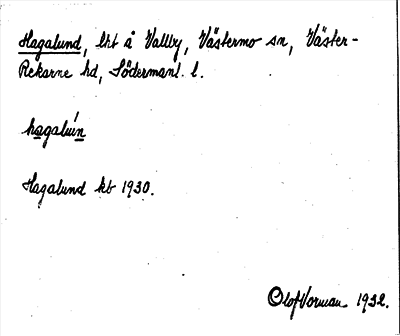 Hagalund, lht å Vallby, Västermo sn, Väster-
Rekarne hd, Södermanl. l.
hagalún
Hagalund kb 1930.
Olof Vorman 1932.